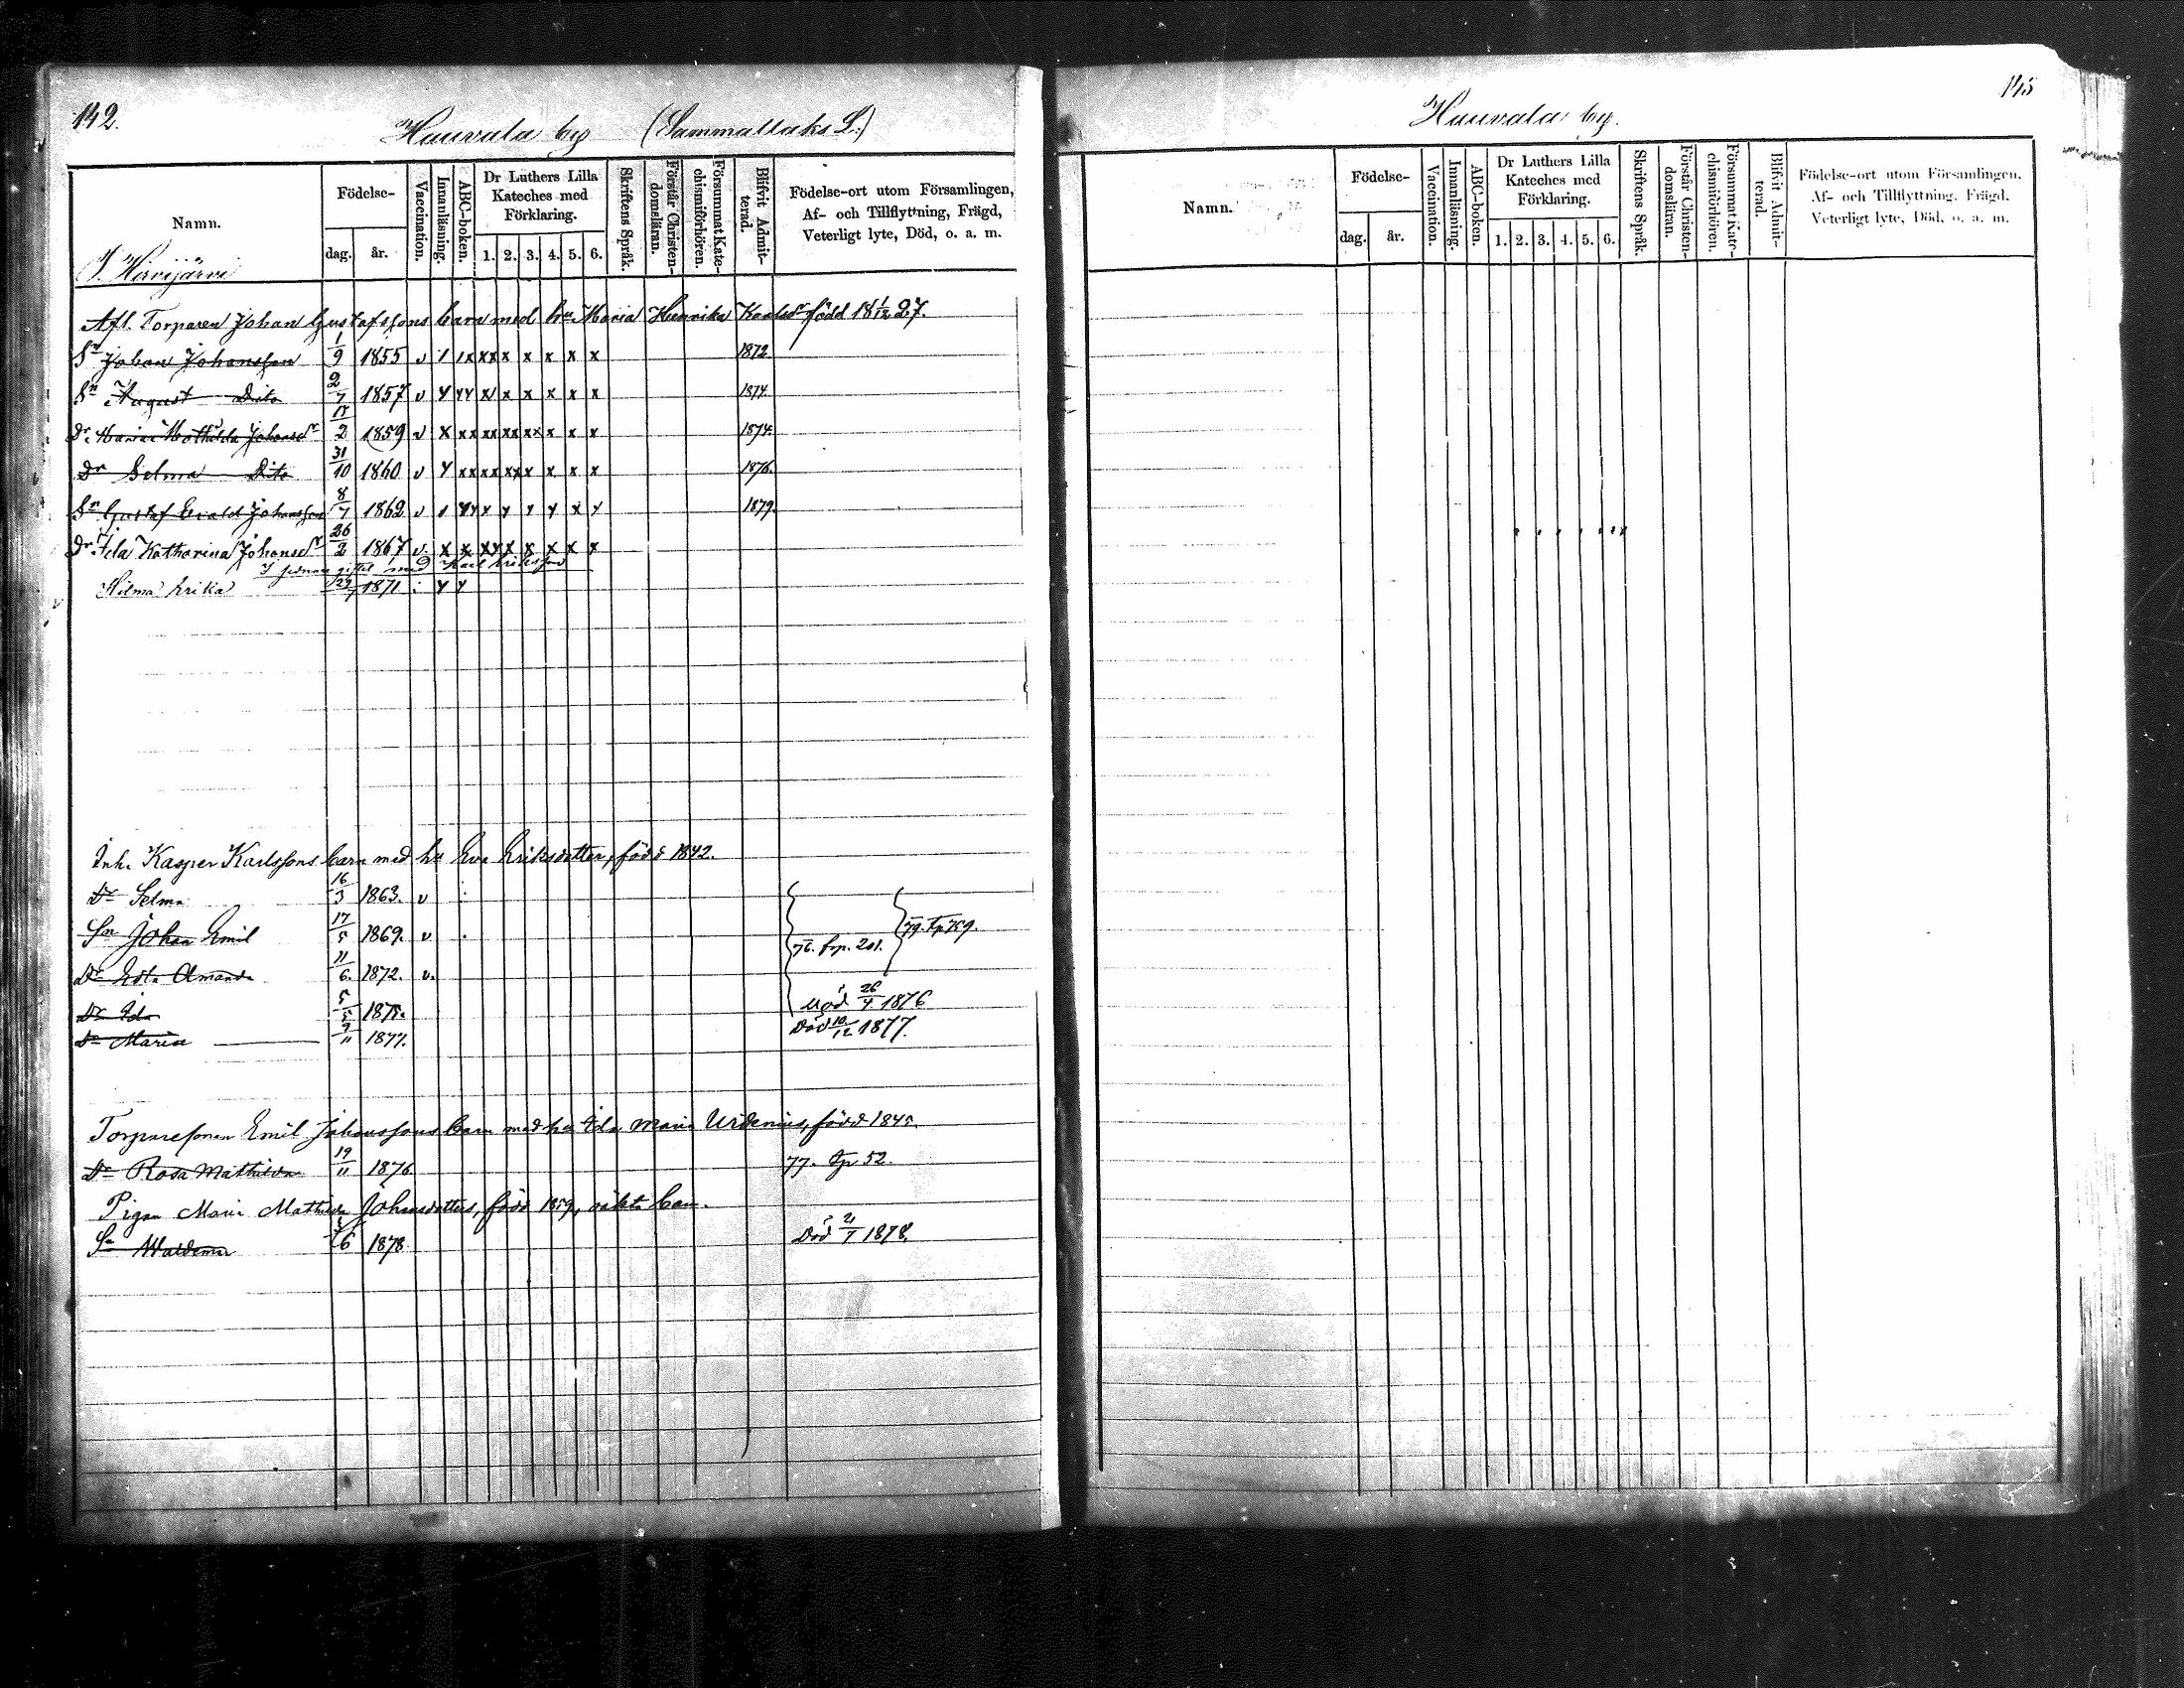 142.
Hauvala by (Sammattaks L.)
Namn.
Födelse-
dag.
år.
Vaccination.
Innanläsning.
ABC-boken.
Dr Luthers Lilla Kateches med Förklaring.
1. 2. 3. 4. 5. 6.
Skriftens Språk.
Förstår Christen-domsläran.
Försummat Kate-chismiförhören.
Blifvit Admit-terad.
Födelse-ort utom Församlingen, Af- och Tillflyttning, Frägd, Veterligt lyte, Död, o. a. m.
Hirvijärvi
Afl. Torparen Johan Gustafssons barn med hu Maria Henrika Karlsdr född 18 1/12 27.
Sn Johan Johansson 1/9 1855 v 1872
Sn August Dito 2/7 1857 v 1874
Dr Maria Mathilda Johansdr 17/2 1859 v 1874
Dr Selma Dito 31/10 1860 v 1876
Sn Gustaf Evald Johansson 8/7 1862 v 1879
Dr Ida Katharina Johansdr 26/2 1867 v
giftet med Karl Eriksson
Hilma Erika 29/7 1871
Inh. Kasper Karlssons barn med hu Eva Eriksdotter, född 1842.
Dr Selma 16/3 1863. v
Sn Johan Emil 17/5 1869. v 76. frp. 201. 79. tp 159.
Dr Edla Amanda 11/6. 1872. v.
Dr Ida 5/5 1875. Död 26/4 1876
Dr Maria 7/11 1877. Död 10/12 1877.
Torparesonen Emil Johanssons barn med hu Ida Maria Urdenius, född 1845.
Dr Rosa Mathilda 19/11 1876 77. tp 52.
Pigan Maria Mathilda Johansdotters, född 1859, oäkta barn.
Sn Waldemar 1878 Död 2/7 1878.
145
Hauvala by.
Namn.
Födelse-
dag.
år.
Vaccination.
Innanläsning.
ABC-boken.
Dr Luthers Lilla Kateches med Förklaring.
1. 2. 3. 4. 5. 6.
Skriftens Språk.
Förstår Christen-domsläran.
Försummat Kate-chismiförhören.
Blifvit Admit-terad.
Födelse-ort utom Församlingen, Af- och Tillflyttning, Frägd, Veterligt lyte, Död, o. a. m.